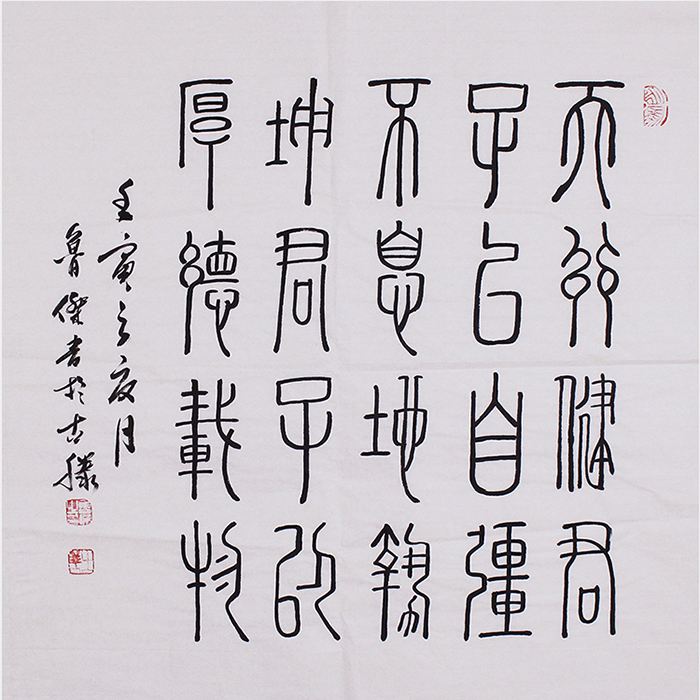 天行健君
子以自彊
不息地勢
坤君子以
厚德載物
壬寅之夏月
魯傑書於古滕